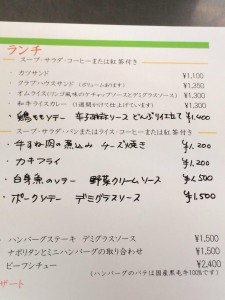 ランチ
スープ・サラダ・コーヒーまたは紅茶付き
・ カツサンド ¥1,100
・ クラブハウスサンド (ボリュームあります) ¥1,350
・ オムライス(リンゴ風味のケチャップソースとデミグラスソース) ¥1,300
・ 和牛ライスカレー (1週間かけて仕上げています) ¥1,300
・ 鶏ももソテー ソース どんぶり仕立て ¥1,400
スープ・サラダ・パンまたはライス・コーヒーまたは紅茶付き
・ 牛すね肉の煮込み チーズ焼き ¥1,200
・ カキフライ ¥1,200
・ 白身魚のソテー 野菜クリームソース ¥1,500
・ ポークソテー デミグラスソース ¥1,500
・ ハンバーグステーキ デミグラスソース ¥1,500
・ ナポリタンとミニハンバーグの取り合わせ ¥1,500
・ ビーフシチュー ¥2,400
(ハンバーグのパテは国産黒毛牛100%です)
ザート